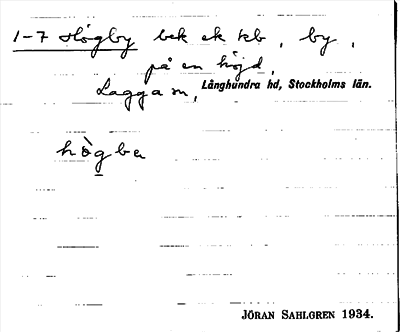 1-7 Högby bek ek kb, by,
på en höjd,
Lagga sn, Långhundra hd, Stockholms län.
hògbɐ
JÖRAN SAHLGREN 1934.